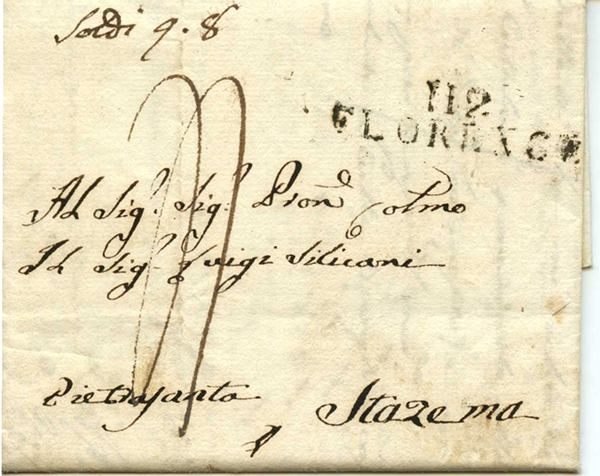 Soldi 9. 8
112
FLORENCE
Al Sig.r Sig.r Pron.e Colmo
Il Sig.r Luigi Silicani
Pietrasanta Stazema